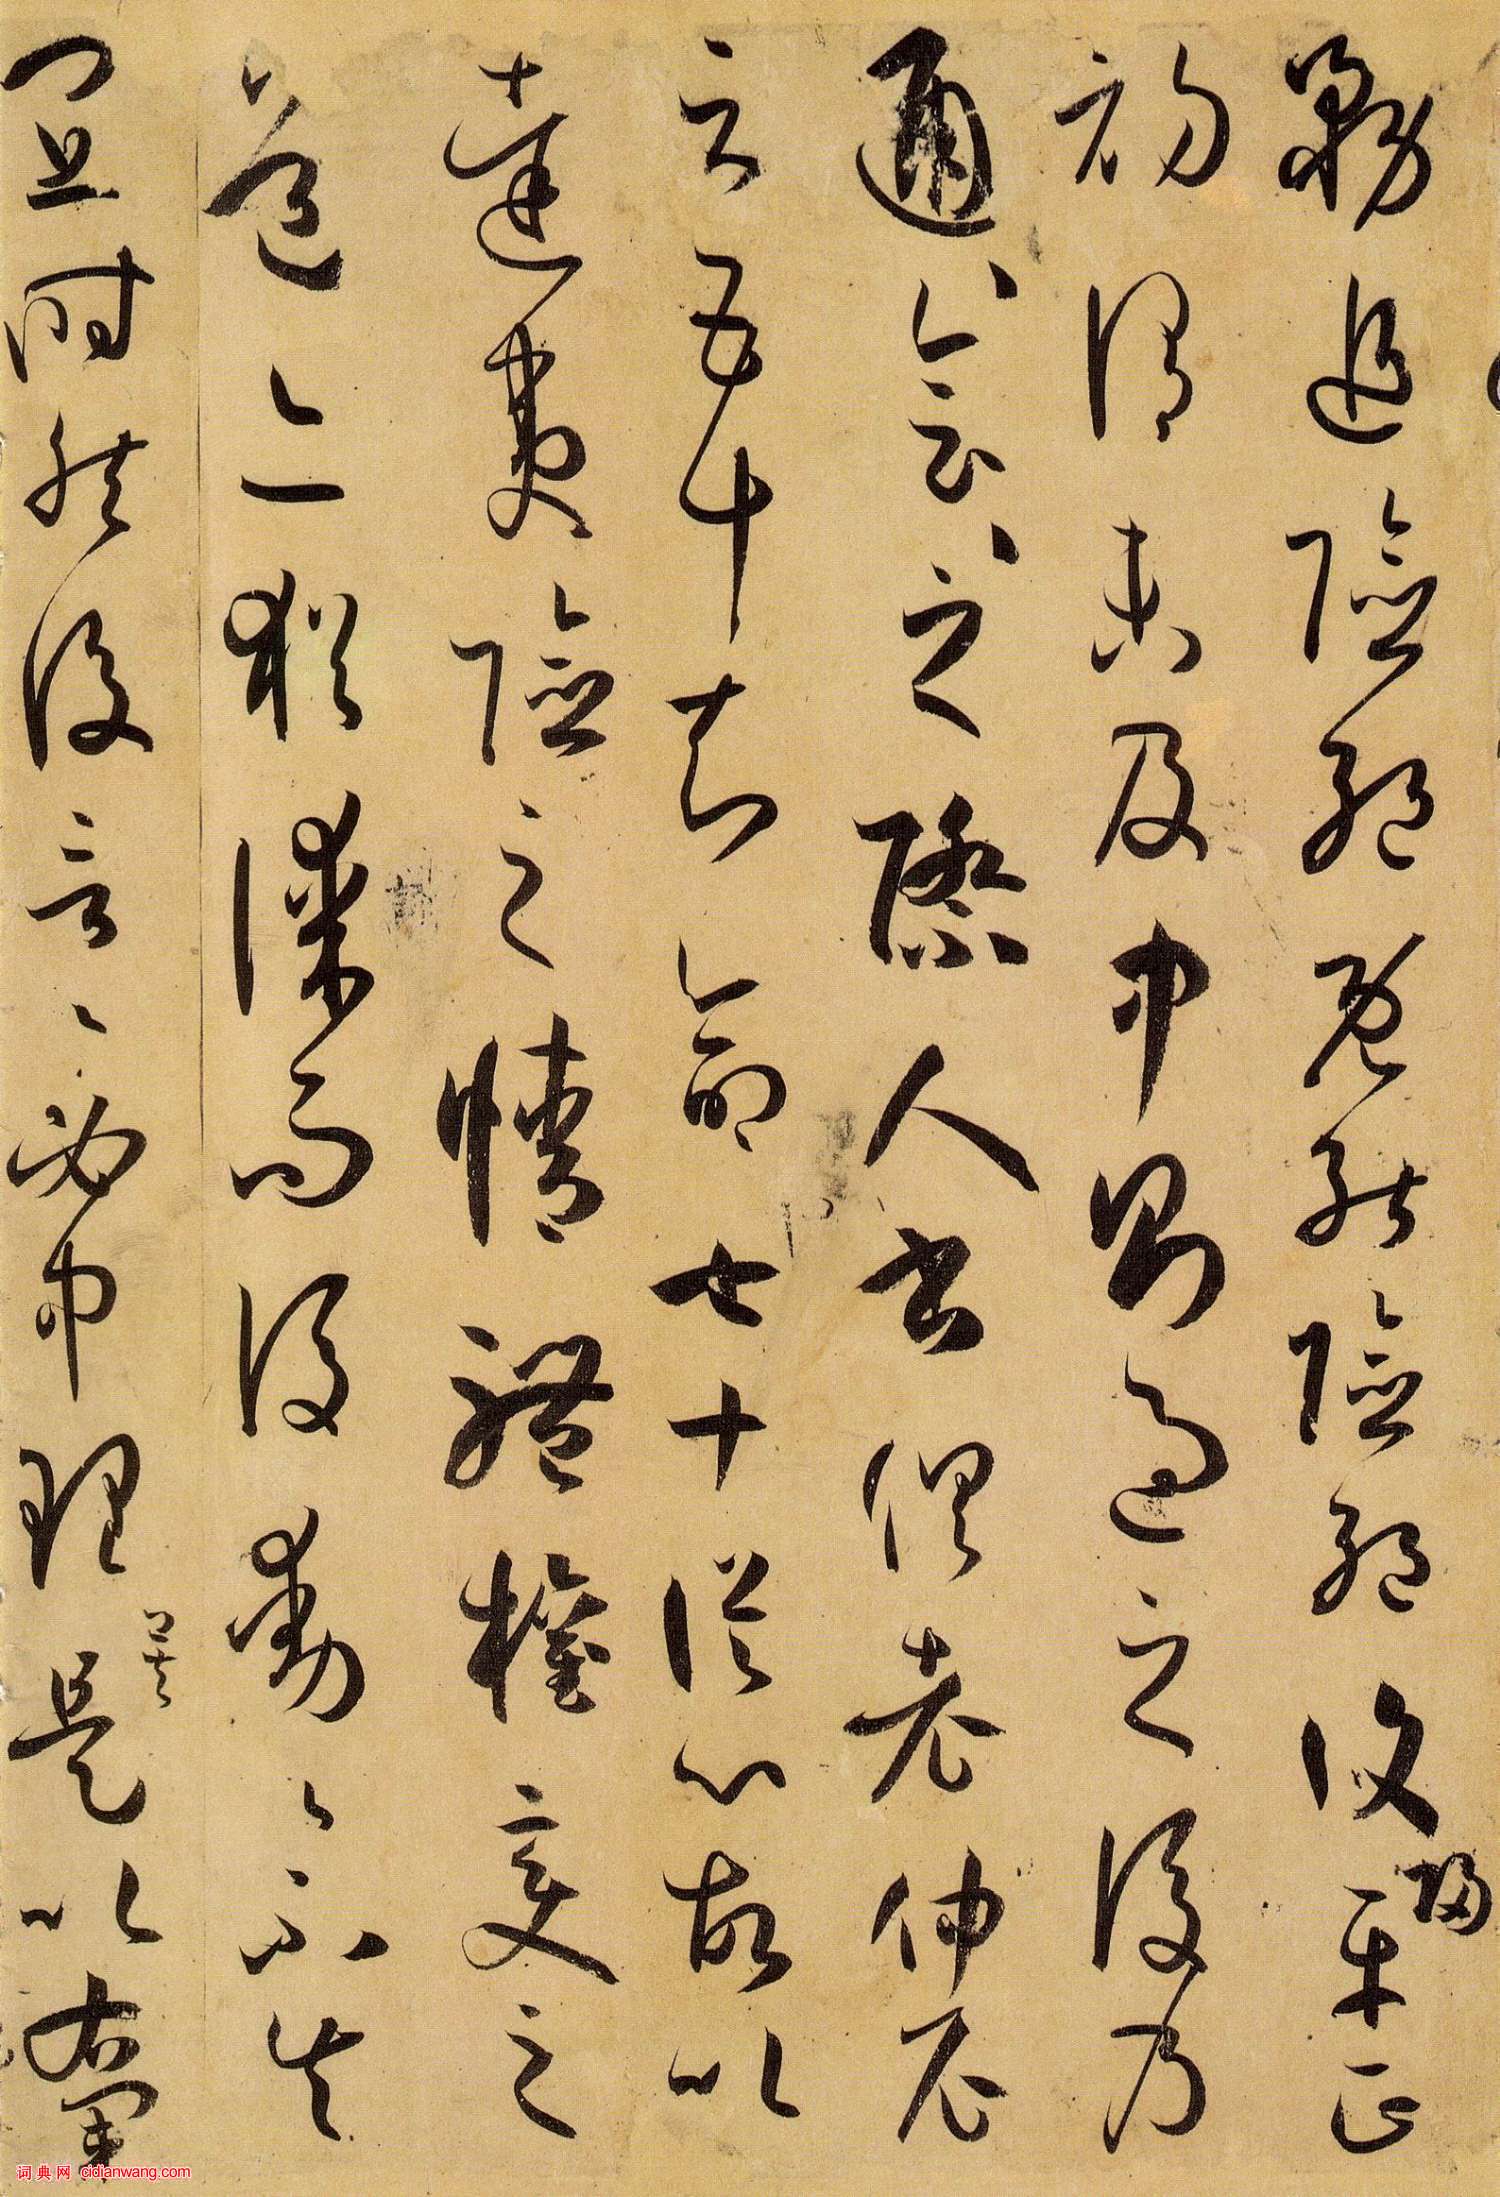 務追險絕既能險絕復歸平正
初謂未及中則過之後乃
通會通會之際人書俱老仲尼
云五十知命七十從心故以
達夷險之情體權變之
道亦猶謀而後動動不失
宜時然後言言必中理矣是以右軍
词典网 cidianwang.com